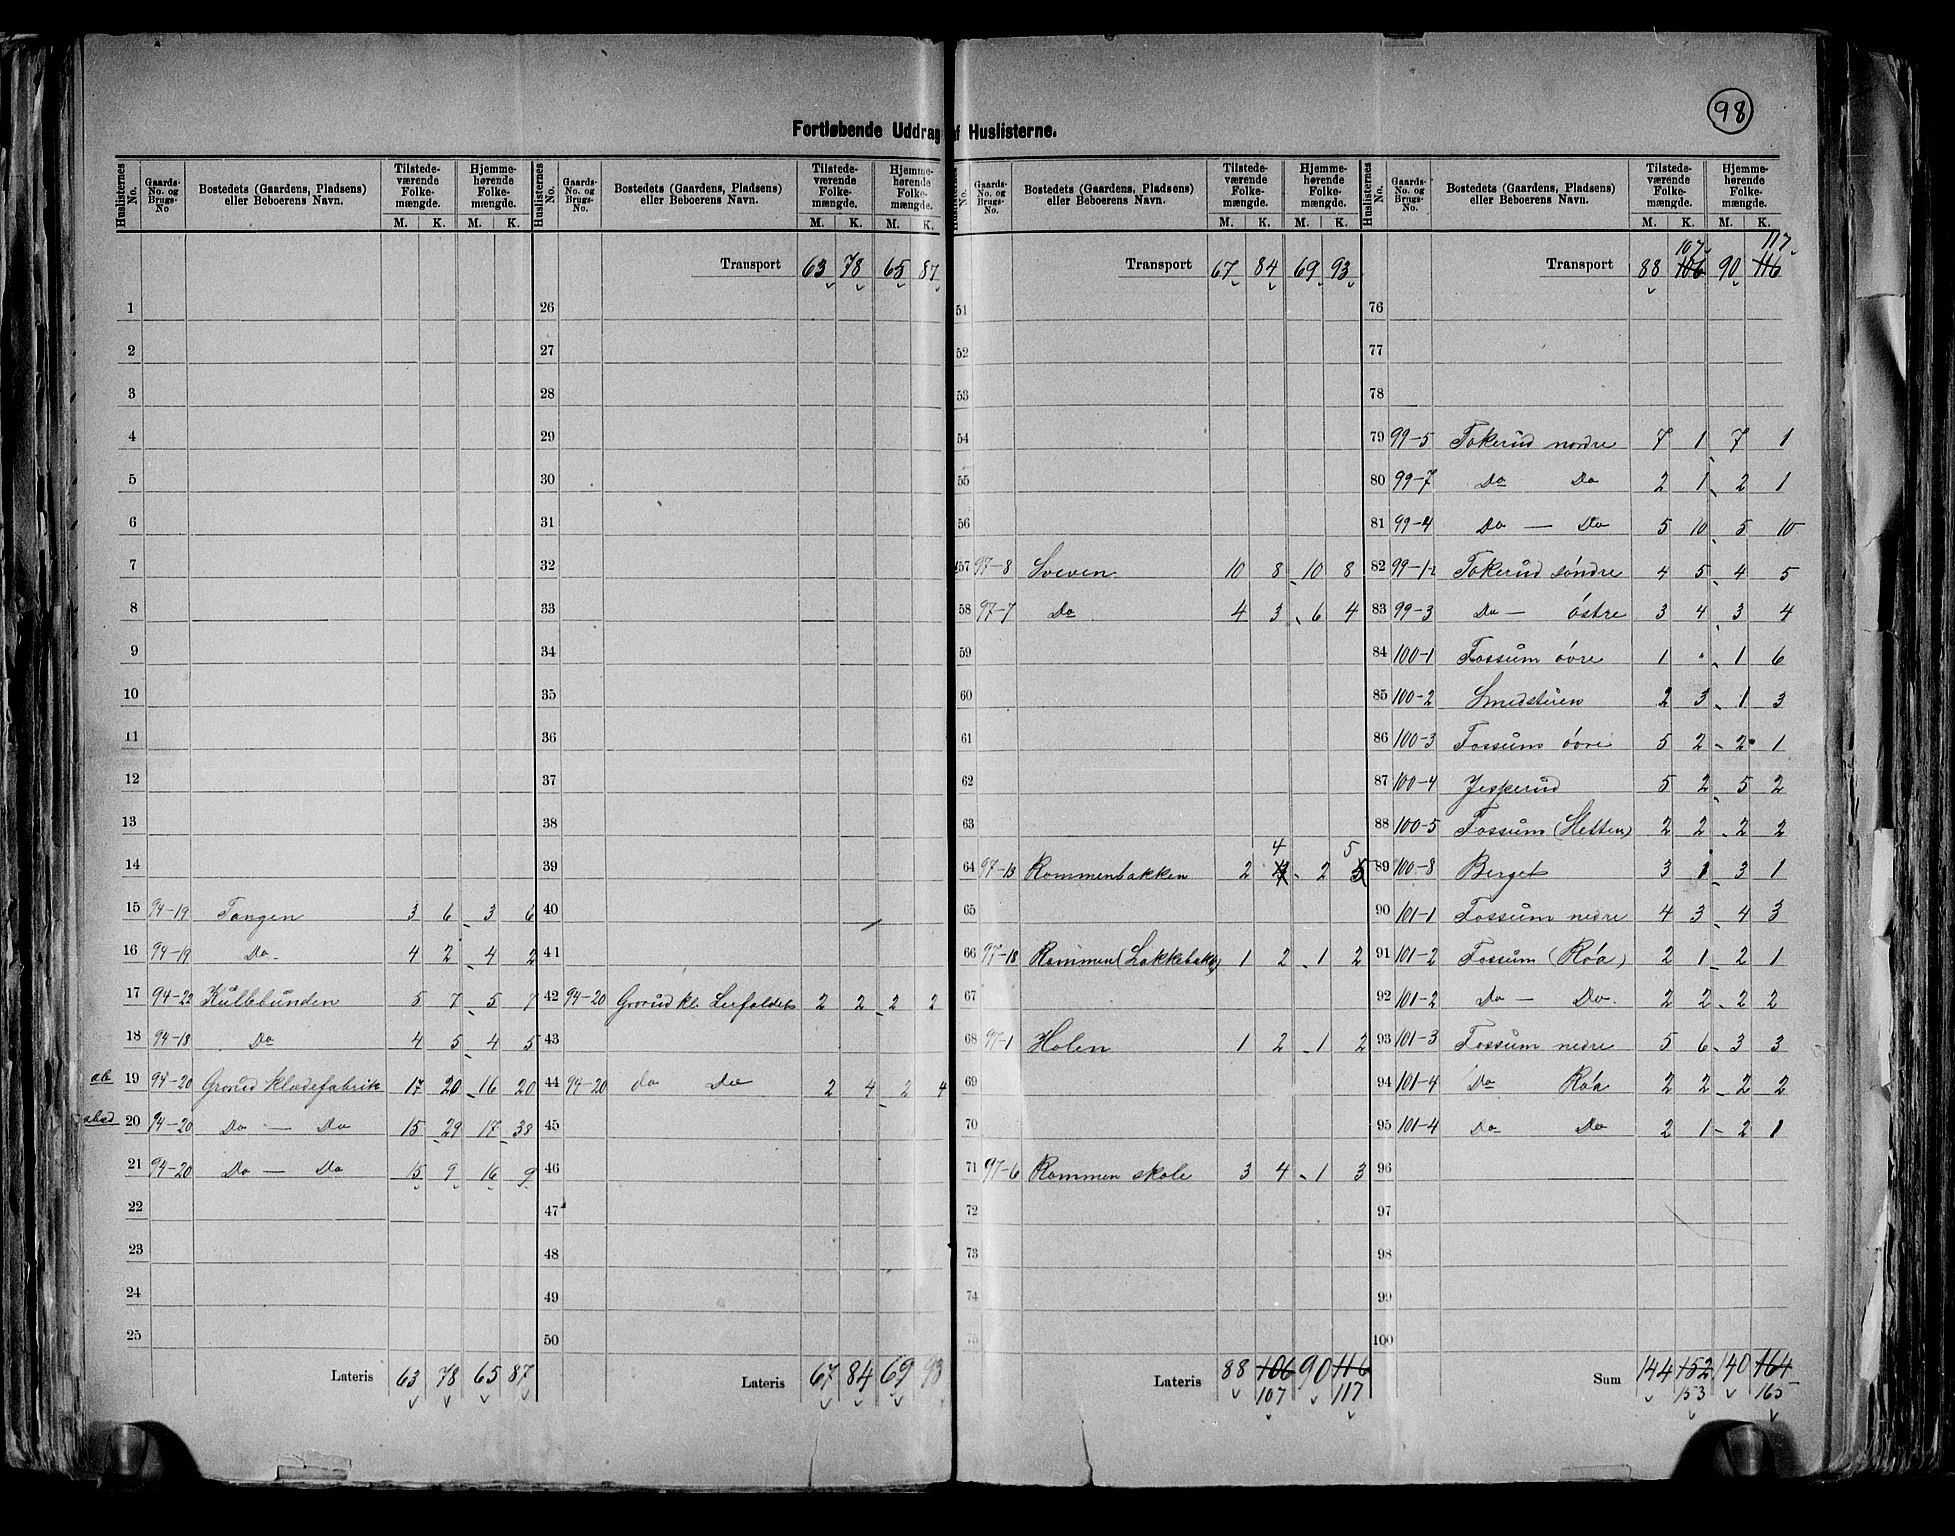 98
Fortløbende Uddrag af Huslisterne.
Huslisternes No. | Gaards-No. og Brugs-No. | Bostedets (Gaardens, Pladsens) eller Beboerens Navn. | Tilstedeværende Folkemængde. M. K. | Hjemmehørende Folkemængde. M. K.
1
2
3
4
5
6
7
8
9
10
11
12
13
14
15 94-19 Tangen 3 6 3 6
16 94-19 Do 4 2 4 2
17 94-22 Kullebunden 5 7 5 7
18 94-18 Do 4 5 4 5
ab 19 94-20 Grorud Klædefabrik 17 20 16 20
abcd 20 94-20 Do — Do 15 29 17 38
21 94-20 Do — Do 15 9 16 9
22
23
24
25
Lateris 63 78 65 87
Huslisternes No. | Gaards-No. og Brugs-No. | Bostedets (Gaardens, Pladsens) eller Beboerens Navn. | Tilstedeværende Folkemængde. M. K. | Hjemmehørende Folkemængde. M. K.
Transport 63 78 65 87
26
27
28
29
30
31
32
33
34
35
36
37
38
39
40
41
42 94-20 Grorud kl. 2 2 2 2
43
44 94-20 do Do 2 4 2 4
45
46
47
48
49
50
Lateris 67 84 69 93
Huslisternes No. | Gaards-No. og Brugs-No. | Bostedets (Gaardens, Pladsens) eller Beboerens Navn. | Tilstedeværende Folkemængde. M. K. | Hjemmehørende Folkemængde. M. K.
Transport 67 84 69 93
51
52
53
54
55
56
57 97-8 Sveven 10 8 10 8
58 97-7 Do 4 3 6 4
59
60
61
62
63
4 5
64 97-13 Rommenbakken 2 2
65
66 97-18 Rommen (Lakkebakk) 1 2 1 2
67
68 97-1 Holen 1 2 1 2
69
70
71 97-6 Rommen skole 3 4 1 3
72
73
74
75
Lateris 88 106 90 116
107 117
Huslisternes No. | Gaards-No. og Brugs-No. | Bostedets (Gaardens, Pladsens) eller Beboerens Navn. | Tilstedeværende Folkemængde. M. K. | Hjemmehørende Folkemængde. M. K.
107 117
Transport 88 106 90 116
76
77
78
79 99-5 Tokerud nordre 7 1 7 1
80 99-7 Do Do 2 1 2 1
81 99-4 Do — Do 5 10 5 10
82 99-12 Tokerud söndre 4 5 4 5
83 99-3 Do — östre 3 4 3 4
84 100-1 Fossum övre 1 " 1 6
85 100-2 Smedstuen 2 3 1 3
86 100-3 Fossum övre 5 2 2 1
87 100-4 Jesperud 5 2 5 2
88 100-5 Fossum (Sletten) 2 2 2 2
89 100-8 Berget 3 1 3 1
90 101-1 Fossum nedre 4 3 4 3
91 101-2 Fossum (Røa) 2 1 2 1
92 101-2 Do — Do 2 2 2 2
93 101-3 Fossum nedre 5 6 3 3
94 101-4 Do Røa 2 2 2 2
95 101-4 Do Do 2 1 2 1
96
97
98
99
100
Sum 144 152 140 164
153 165